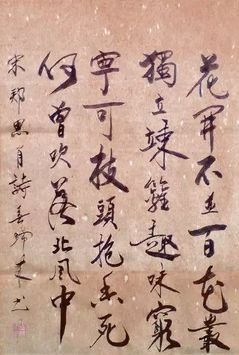 花開不並百花叢
獨立疎籬趣味窮
寧可枝頭抱香死
何曾吹落北風中
宋鄭思肖詩